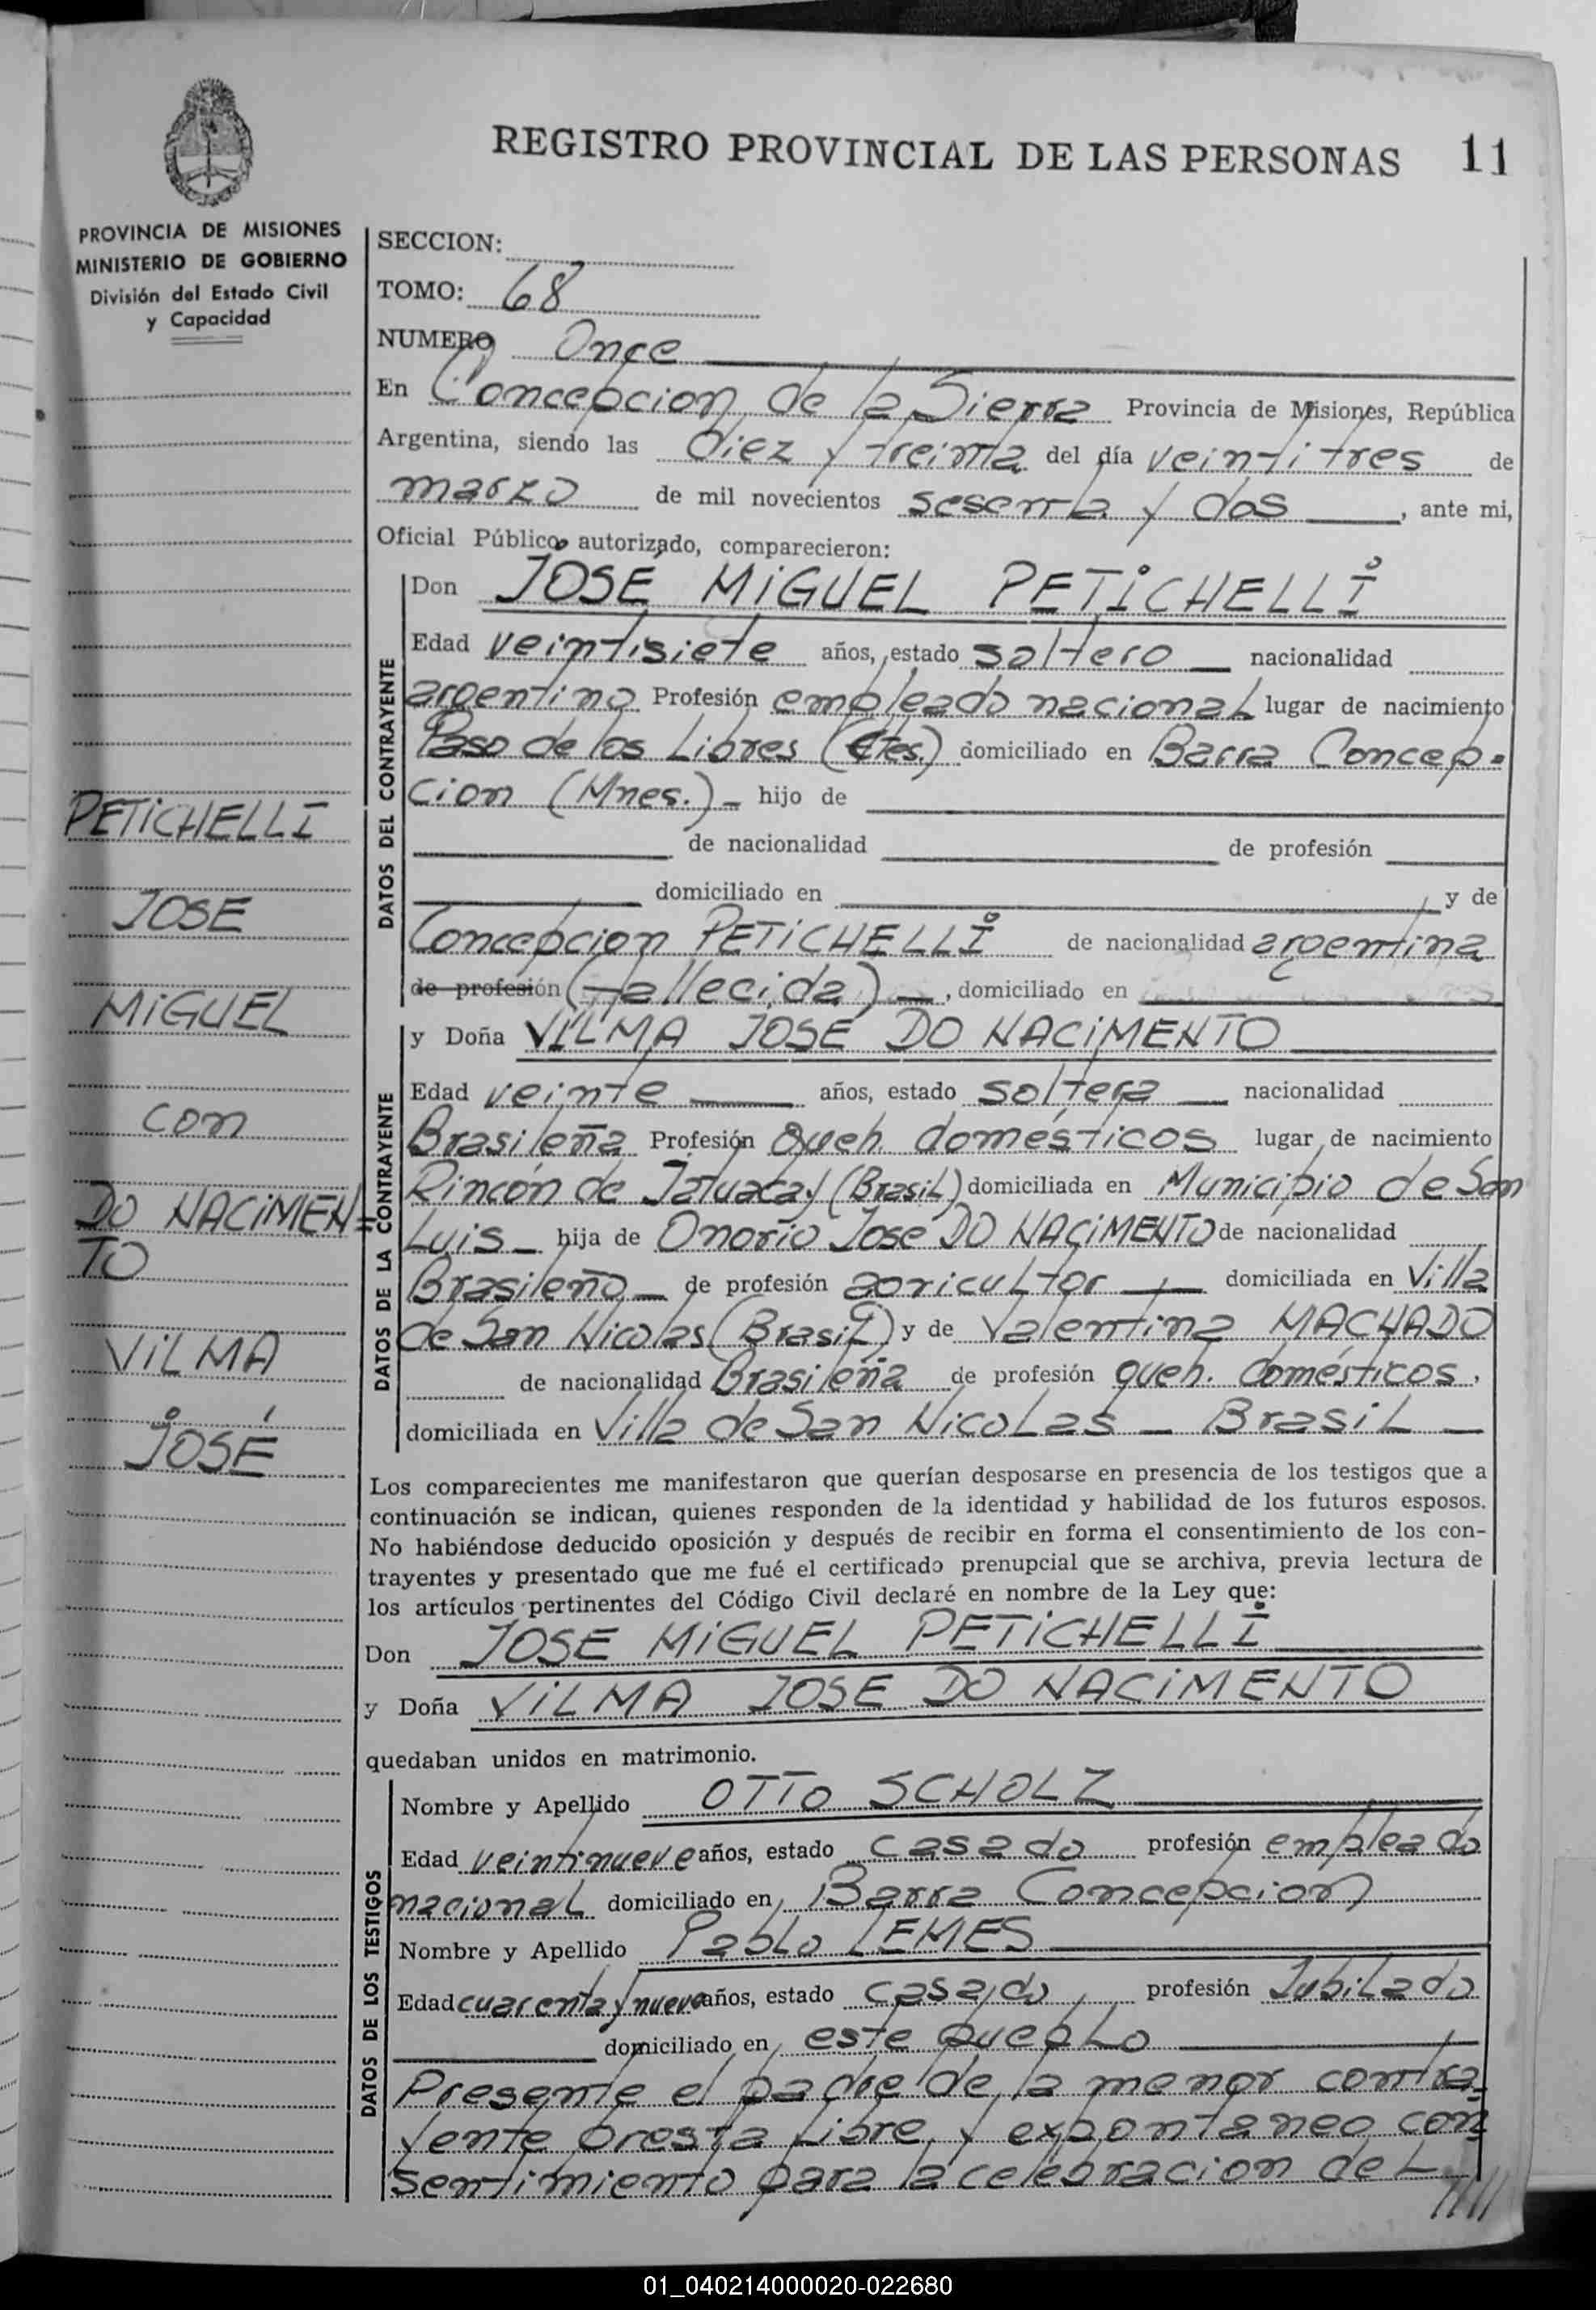 REGISTRO PROVINCIAL DE LAS PERSONAS 11
PROVINCIA DE MISIONES
MINISTERIO DE GOBIERNO
División del Estado Civil
y Capacidad
PETICHELLI
JOSE
MIGUEL
con
DO NACIMIEN=
TO
VILMA
JOSÉ
SECCION:
TOMO: 68
NUMERO Once
En Concepcion de la Sierra Provincia de Misiones, República
Argentina, siendo las diez y treinta del día veintitres de
marzo de mil novecientos sesenta y dos, ante mi,
Oficial Público autorizado, comparecieron:
DATOS DEL CONTRAYENTE
Don JOSÉ MIGUEL PETICHELLI
Edad veintisiete años, estado soltero nacionalidad
argentino Profesión empleado nacional lugar de nacimiento
Paso de los Libres (Ctes.) domiciliado en Barra Concep=
cion (Mnes.) hijo de
de nacionalidad de profesión
domiciliado en y de
Concepcion PETICHELLI de nacionalidad argentina
de profesión (fallecida), domiciliado en
DATOS DE LA CONTRAYENTE
y Doña VILMA JOSÉ DO NACIMENTO
Edad veinte años, estado soltera nacionalidad
Brasileña Profesión queh. domésticos lugar de nacimiento
Rincón de (Brasil) domiciliada en Municipio de San
Luis hija de Onorio Jose DO NACIMENTO de nacionalidad
Brasileño de profesión agricultor domiciliada en Villa
de San Nicolas (Brasil) y de Valentina MACHADO
de nacionalidad Brasileña de profesión queh. domésticos,
domiciliada en Villa de San Nicolas - Brasil -
Los comparecientes me manifestaron que querían desposarse en presencia de los testigos que a
continuación se indican, quienes responden de la identidad y habilidad de los futuros esposos.
No habiéndose deducido oposición y después de recibir en forma el consentimiento de los con-
trayentes y presentado que me fué el certificado prenupcial que se archiva, previa lectura de
los artículos pertinentes del Código Civil declaré en nombre de la Ley que:
Don JOSE MIGUEL PETICHELLI
y Doña VILMA JOSE DO NACIMENTO
quedaban unidos en matrimonio.
DATOS DE LOS TESTIGOS
Nombre y Apellido OTTO SCHOLZ
Edad veintinueve años, estado casado profesión empleado
nacional domiciliado en Barra Concepcion
Nombre y Apellido Pablo LEMES
Edad cuarenta y nueve años, estado casado profesión Jubilado
domiciliado en este pueblo
Presente el padre de la menor contra=
yente presta libre y expontaneo con=
sentimiento para la celebracion del
01_040214000020-022680